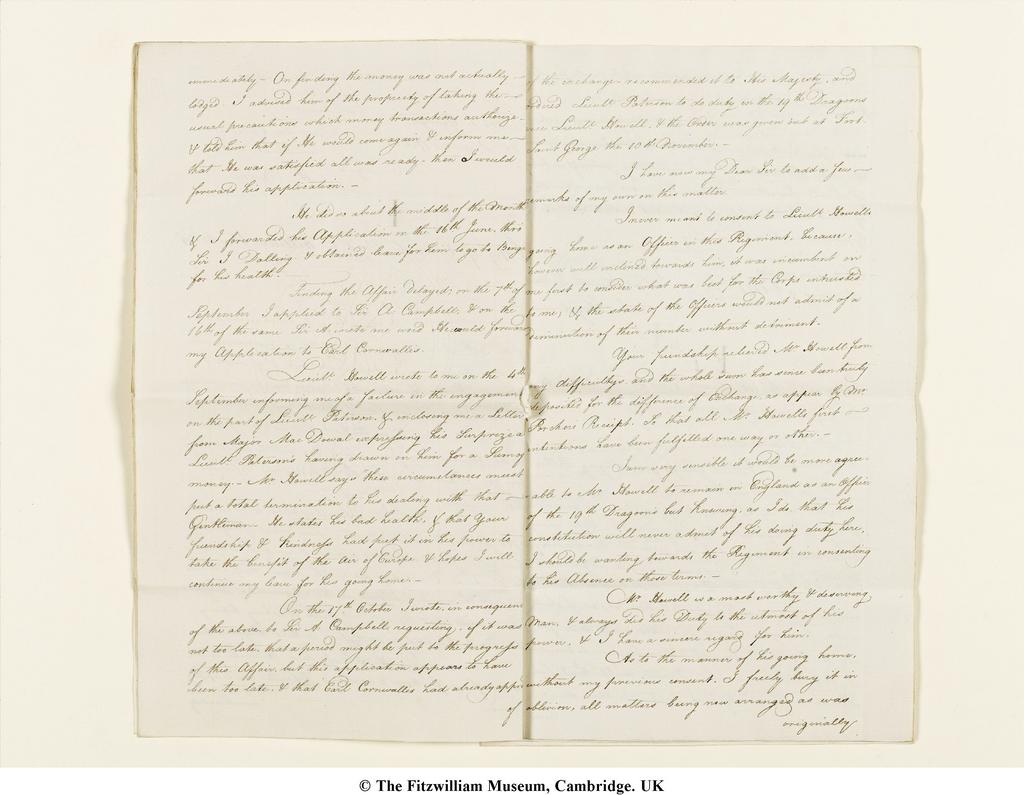 immediately - On finding the money was not actually
lodged I advised him of the propriety of taking the
usual precautions which money transactions authorize
& told him that if He would come again & inform me
that He was satisfied all was ready - then I would
forward his application. -
He did so about the middle of the Month
& I forwarded his Application on the 16th June, thro'
Sir J Dalling & obtained leave for him to go to Beng
for his health.
Finding the Affair delayed, on the 7th of
September I applied to Sir A. Campbell, & on the
16th of the same Sir A wrote me word He would forward
my Application to Earl Cornwallis.
Lieut. Howell wrote to me on the 4th
September informing me of a failure in the engagement
on the part of Lieut Paterson, & inclosing me a Letter
from Major Mac Dowal expressing his Surprize a
Lieut. Paterson's having drawn on him for a Sum of
money. - Mr. Howell says these circumstances must
put a total termination to his dealing with that
Gentleman. He states his bad health, & that Your
friendship & kindness had put it in his power to
take the benefit of the Air of Europe & hopes I will
continue my leave for his going home. -
On the 17th October I wrote, in consequen
of the above to Sir A. Campbell requesting, if it was
not too late, that a period might be put to the progress
of this Affair, but this application appears to have
been too late, & that Earl Cornwallis had already appr
of
of the exchange - recommended it to His Majesty, and
ordered Lieut. Paterson to do duty in the 19th Dragoons
vice Lieut. Howell, & the Order was given out at Fort
Saint George the 10th November. -
I have now my Dear Sir to add a few
remarks of my own on this matter
I never meant to consent to Lieut. Howells
going home as an Officer in this Regiment, because,
however well inclined towards him, it was incumbent on
me first to consider what was best for the Corps intrusted
to me, & the state of the Officers would not admit of a
diminution of their number without detriment.
Your friendship relieved Mr. Howell from
my difficultys, and the whole sum has since been truly
deposited for the difference of Exchange, as appear by Mr.
Porchers Receipt. So that all Mr. Howells first
intentions have been fulfilled one way or other. -
I am very sensible it would be more agree-
able to Mr. Howell to remain in England as an Officer
of the 19th Dragoons but knowing, as I do that his
constitution will never admit of his doing duty here,
I should be wanting towards the Regiment in consenting
to his Absence on those terms. -
Mr. Howell is a most worthy & deserving
Man, & always did his Duty to the utmost of his
power, & I have a sincere regard for him.
As to the manner of his going home,
without my previous consent, I freely bury it in
oblivion, all matters being now arranged as was
originally
© The Fitzwilliam Museum, Cambridge. UK